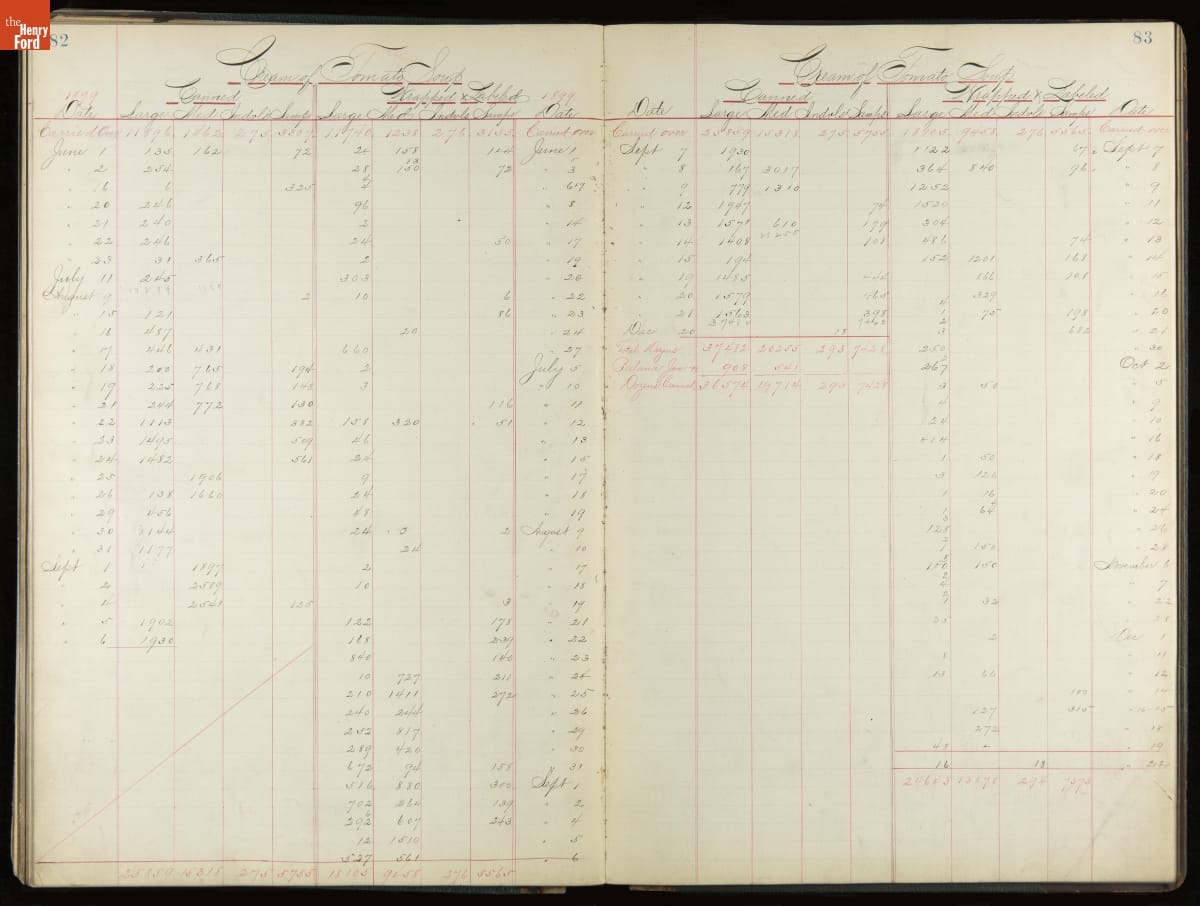 the Henry Ford
82
Cream of Tomato Soup
1899 Canned Wrapped & Labeled 1899
Date Large Med Indols Samps Large Med Indols Samps Date
Carried Over 11996 1462 275 3307 11740 1238 276 3155 Carried over
June 1 135 162 72 24 158 114 June 1
" 2 254 28 150 72 " 3
" 16 6 325 4 " 6 17
" 20 246 96 " 8
" 21 240 2 " 14
" 22 246 24 50 " 17
" 23 31 365 2 " 19
July 11 245 303 " 20
August 9 2 10 6 " 22
" 15 121 86 " 23
" 16 487 20 " 24
" 17 446 431 660 " 27
" 18 200 765 194 2 July 5
" 19 225 768 148 3 " 10
" 21 244 772 130 116 " 11
" 22 1113 382 158 320 51 " 12
" 23 1495 509 46 " 13
" 24 1482 561 24 " 15
" 25 1906 9 " 17
" 26 138 1660 24 " 18
" 29 456 48 " 19
" 30 144 24 3 2 August 9
" 31 1177 24 " 10
Sept 1 1897 2 " 17
" 2 2589 10 " 18
" 4 2541 125 3 " 19
" 5 1902 122 178 " 21
" 6 1930 168 239 " 22
840 140 " 23
10 727 211 " 24
210 1411 272 " 25
240 244 " 26
252 817 " 29
289 420 " 30
672 94 158 " 31
516 880 300 Sept 1
702 264 139 " 2
292 607 243 " 4
12 1510 " 5
527 561 " 6
25859 15318 275 5755 18105 9458 276 5565
83
Cream of Tomato Soup
Canned Wrapped & Labeled
Date Large Med Indols Samps Large Med Indols Samps Date
Carried over 25859 15318 275 5755 18905 9458 276 5565 Carried over
Sept 7 1930 1122 67 Sept 7
" 8 167 3017 364 840 96 " 8
" 9 779 1310 1252 " 9
" 12 1947 74 1520 " 11
" 13 1578 610 179 304 " 12
" 14 1408 108 486 74 " 13
" 15 194 152 1201 168 " 14
" 19 1485 444 866 108 " 15
" 20 1579 465 4 329 " 16
" 21 1563 398 1 75 198 " 20
Dec 20 18 3 682 " 21
Total Dozens 37482 20255 293 7428 250 " 30
Balance Jan 908 541 267 Oct 2
Dozens Canned 36574 19714 293 7428 3 50 " 5
4 " 9
24 " 10
414 " 16
1 50 " 18
3 126 " 19
1 16 " 20
1 64 " 24
128 " 26
1 150 " 28
100 150 November 6
4 " 7
1 32 " 22
25 " 28
2 Dec 1
8 " 11
13 66 " 12
100 " 14
127 315 " 16 15
272 " 18
48 " 19
16 18 " 22
24643 13878 294 7373